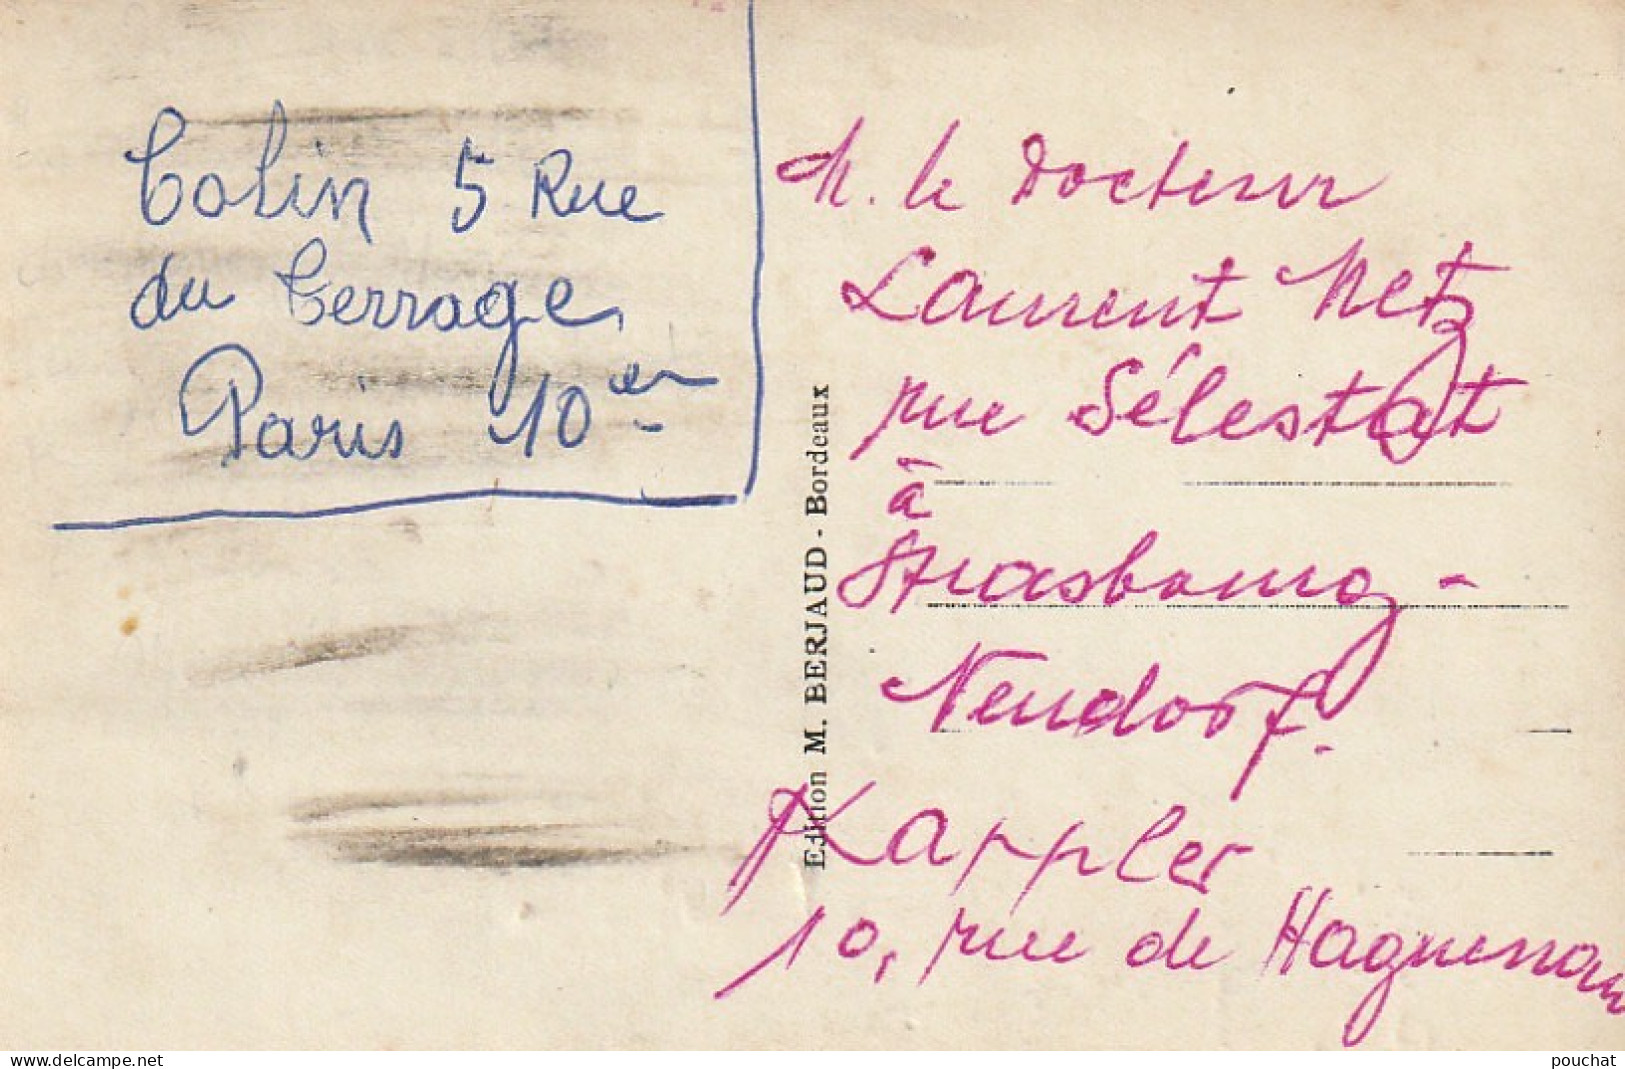 Colin 5 Rue
du Terrage
Paris 10er
Edition M. BERJAUD - Bordeaux
M. le Docteur
Laurent Metz
rue Sélestat
à
Strasbourg-
Neudorf.
Kappler
10, rue de Haguenau
www.delcampe.net
pouchat